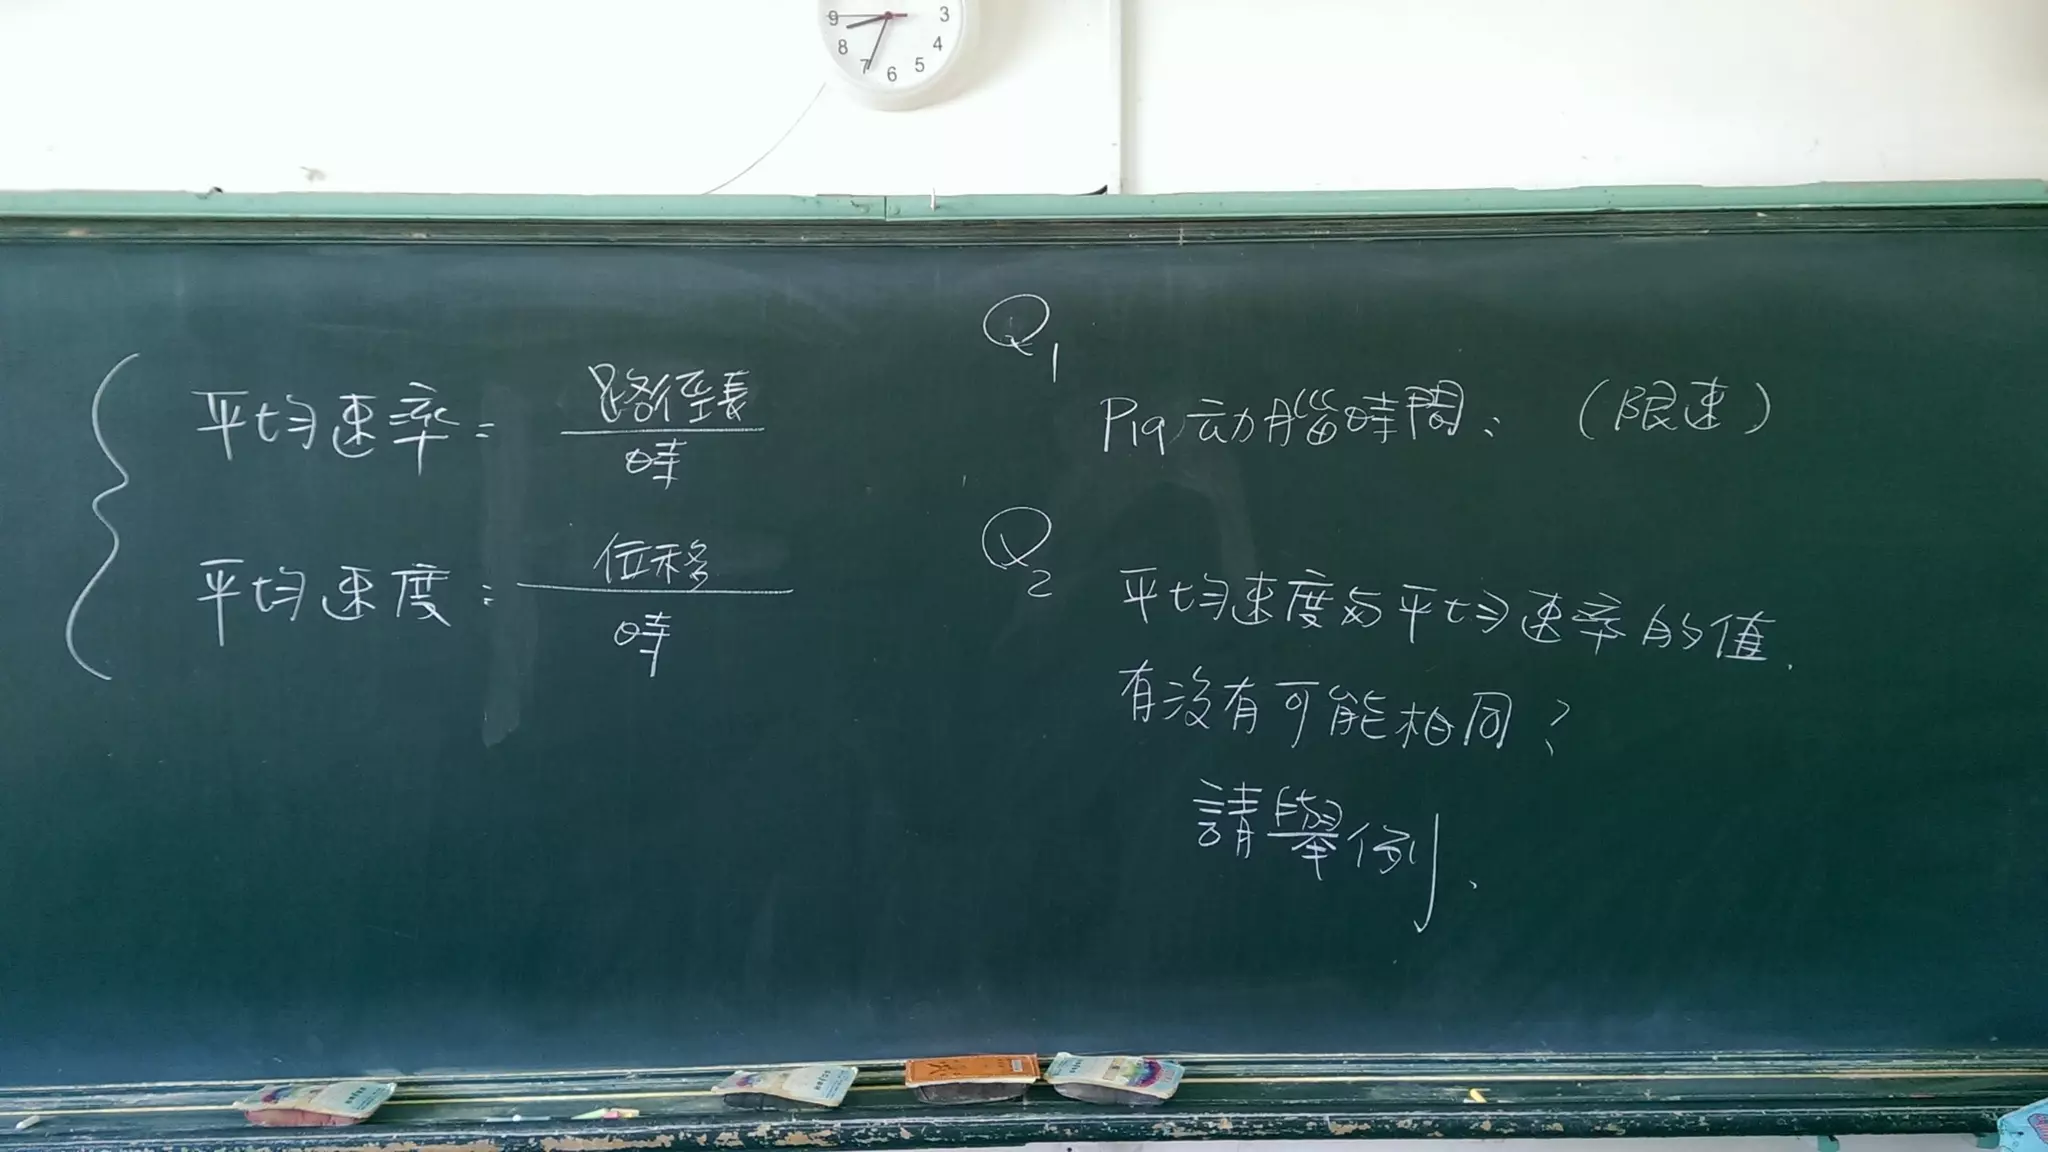 9 3
8 4
7 6 5
平均速率 = 路徑長
時
平均速度 = 位移
時
Q1
P19 动腦時間: (限速)
Q2
平均速度与平均速率的值.
有沒有可能相同?
請舉例.